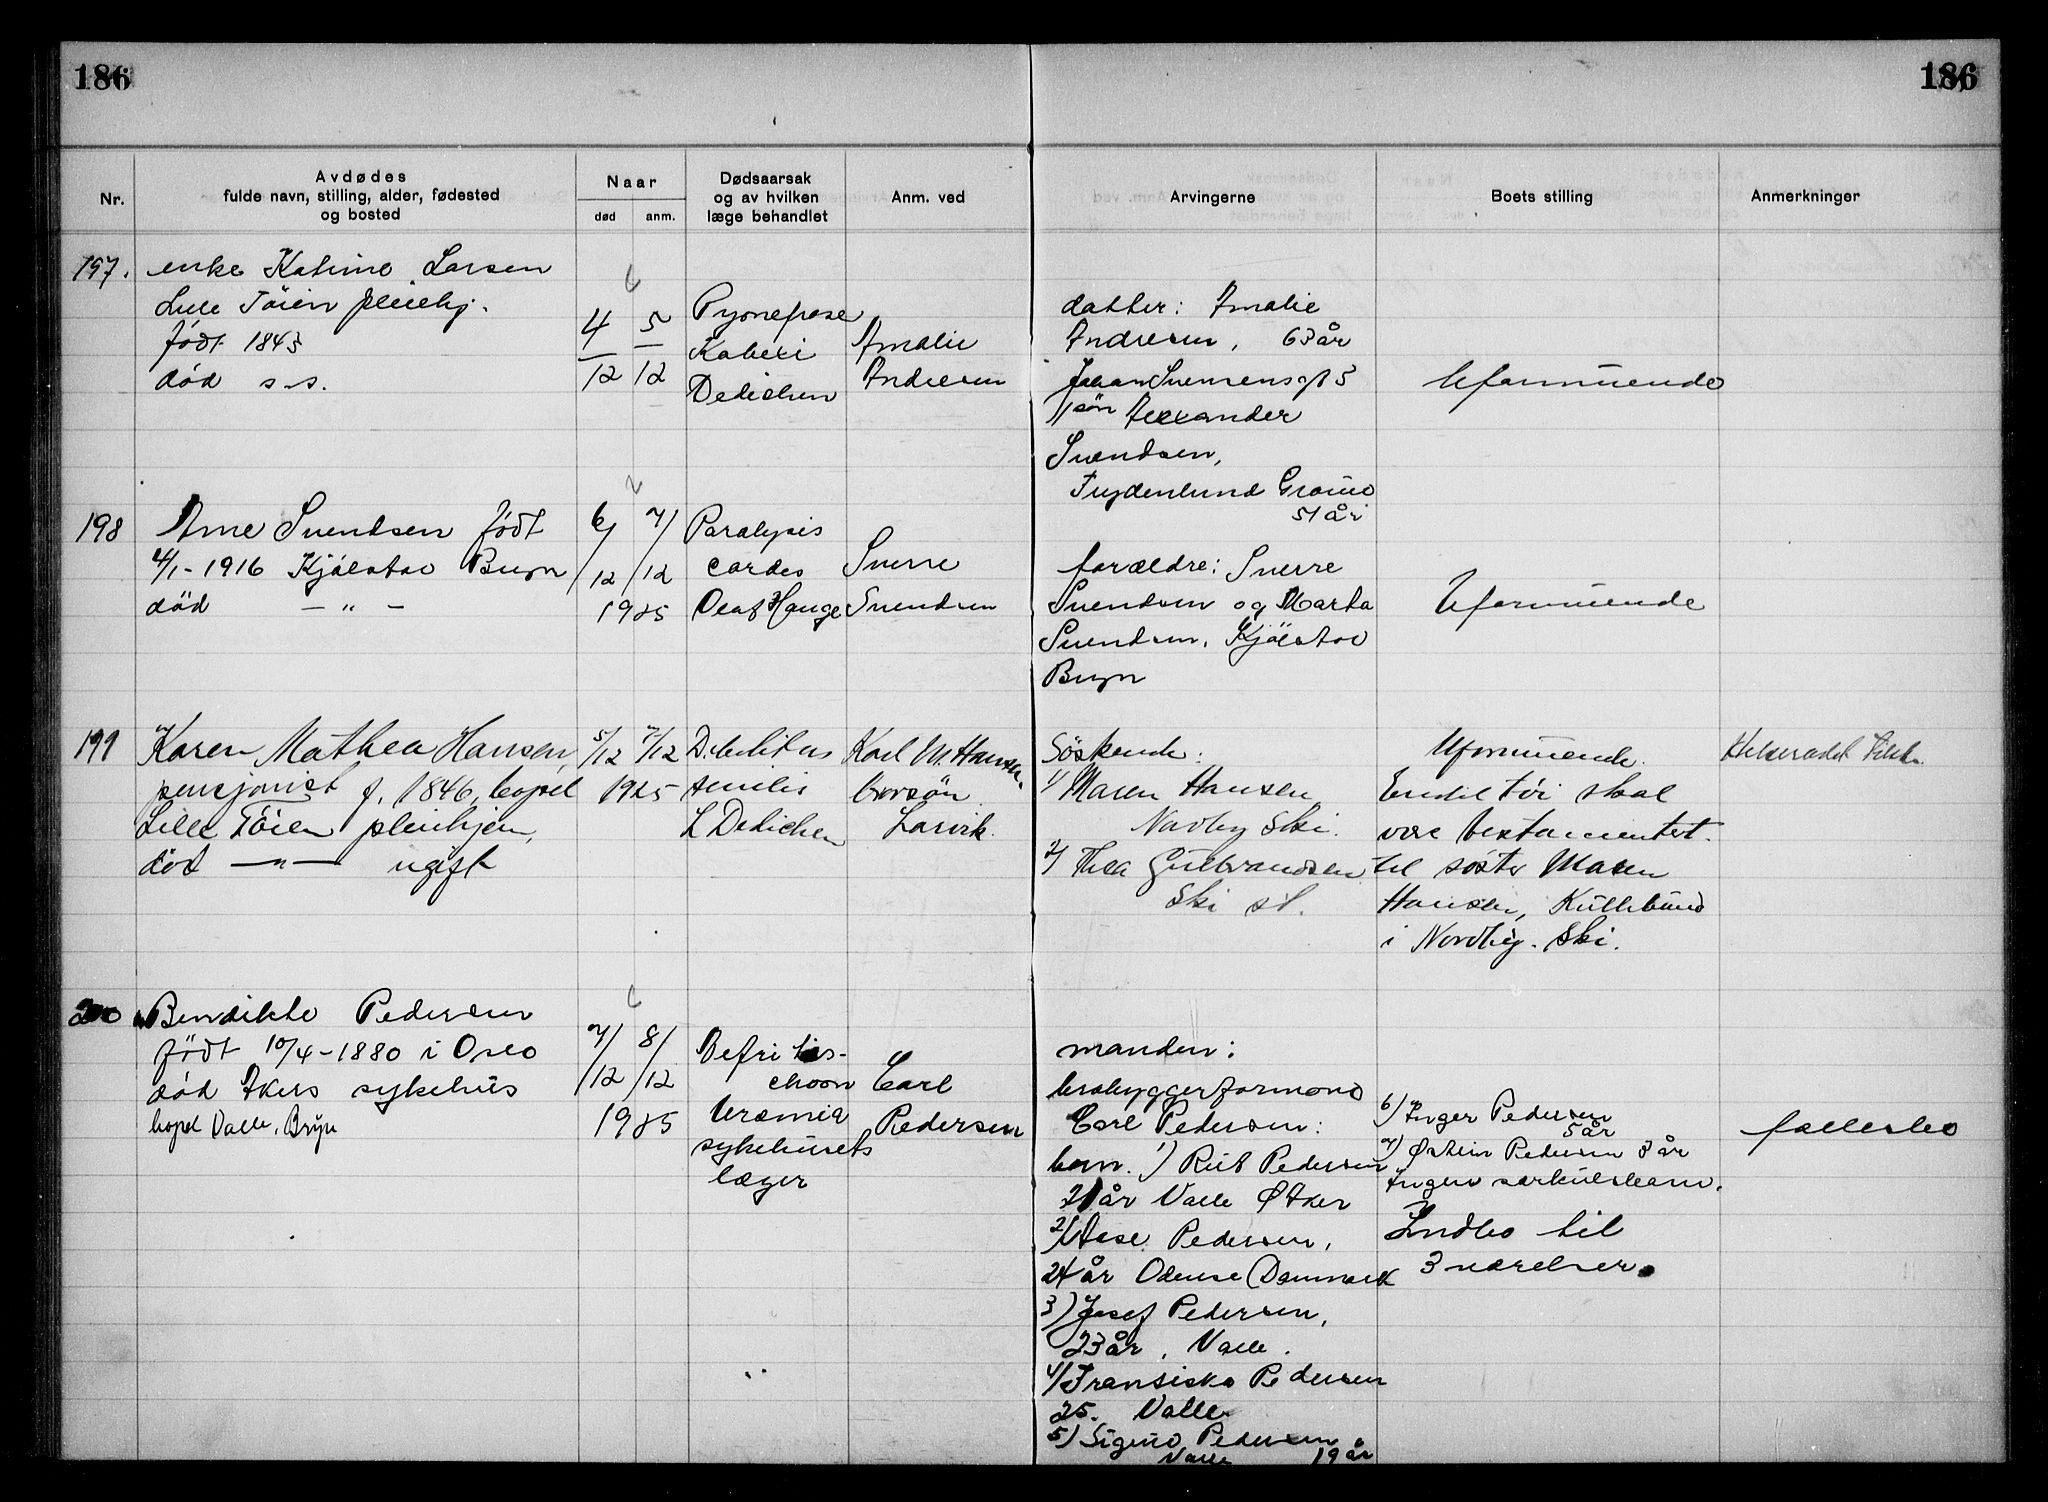 186
186
Nr.
Avdødes
fulde navn, stilling, alder, fødested
og bosted
Naar
død
anm.
Dødsaarsak
og av hvilken
læge behandlet
Anm. ved
Arvingerne
Boets stilling
Anmerkninger
197.
enke Katrine Larsen
Lille Töien pleiehj.
född 1843
död s.s.
4/12
5/12
Pyonefrose
Dedichen
Amalie
Andresen
datter: Amalie
Andresen, 63 år
Johan Svensensgt 3
sön Alexander
Svendsen,
Frydenlund Grorud
51 år
Uformuende
198
Arne Svendsen födt
4/1-1916 Kjölstad Bryn
död -"-
6/12
7/12
1925
Paralysis
cordis
Olaf Hauge
Sverre
Svendsen
forældre: Sverre
Svendsen og Marta
Svendsen, Kjölstad
Bryn
Uformuende
199
Karen Mathea Hansen,
pensjonist f. 1846, bopel
Lille Töien pleiehjem,
död -"- ugift
5/12
7/12
1925
Debilitas
senilis
L Dedichen
Karl M. Hansen,
brorsön
Larvik.
Söskende:
1/ Maren Hansen
Nordby Ski.
2/ Thea Gulbrandsen
Ski st.
Uformuende.
Endel töi skal
være testamentert
til söster Maren
Hansen, Kullebund
i Nordby. Ski.
Helserådet
200
Bendikte Pedersen
födt 10/4-1880 i Oslo
död Akers sykehus
bopel Valle, Bryn
7/12
8/12
1925
chron
Uræmia
sykehusets
læger
Carl
Pedersen
manden:
brobyggerformand
Carl Pedersen:
barn. 1) Rut Pedersen
21 år Valle Ø Aker
2/ Aase Pedersen,
24 år Odense Danmark
3) Josef Pedersen,
23 år, Valle.
4/ Fransiska Pedersen
25. Valle
5) Sigurd Pedersen
Valle 19 år
6) Inger Pedersen
5 år
7) Østein Pedersen 8 år
Ingen særkulsbarn.
Indbo til
3 værelser.
fællesbo